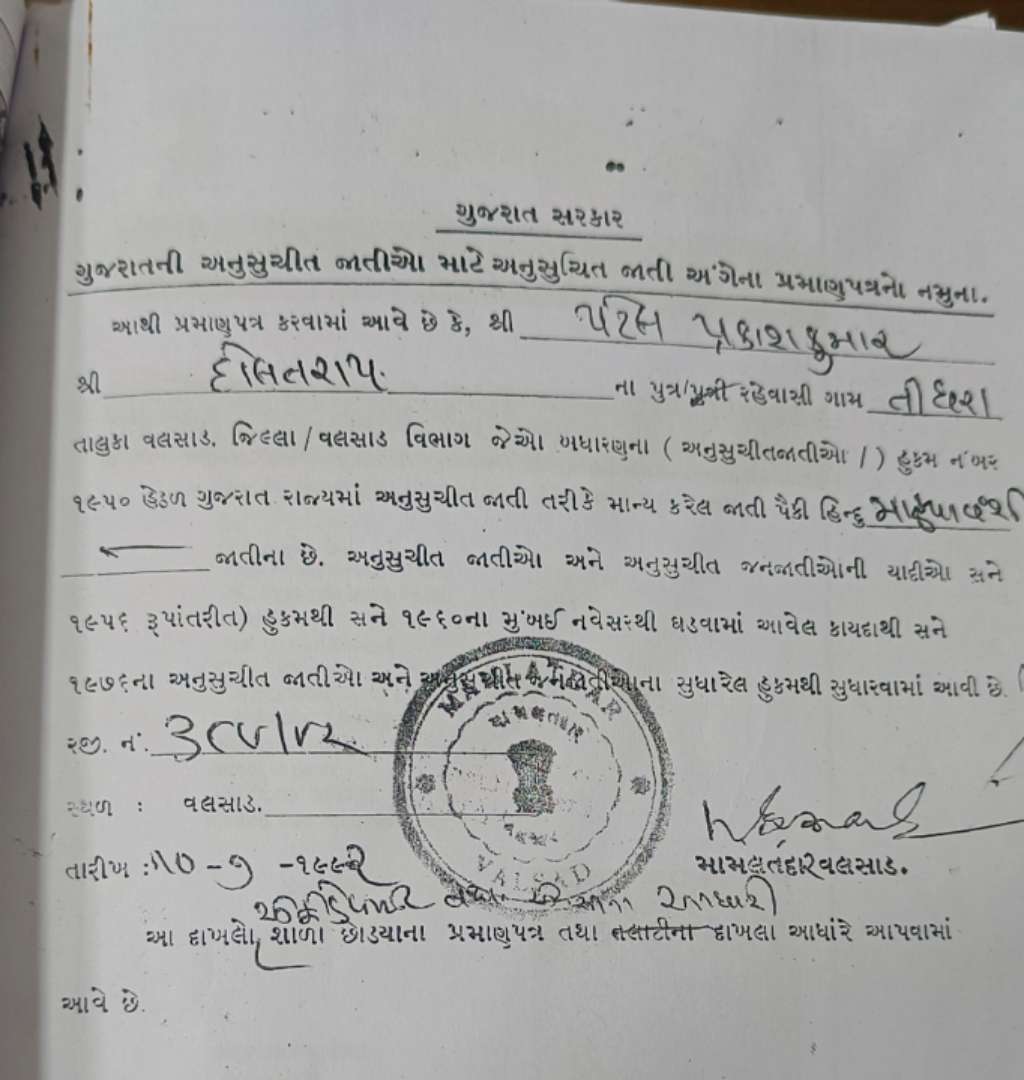 ગુજરાત સરકાર
ગુજરાતની અનુસુચીત જાતીઓ માટે અનુસુચિત જાતી અંગેના પ્રમાણપત્રનો નમુના.
આથી પ્રમાણપત્ર કરવામાં આવે છે કે, શ્રી પટેલ પ્રકાશકુમાર
શ્રી દલિતરાય ના પુત્ર/પુત્રી રહેવાસી ગામ તીઘરા
તાલુકા વલસાડ. જિલ્લા/વલસાડ વિભાગ જેઓ બધારણના (અનુસુચીતજાતીઓ /) હુકમ નંબર
૧૯૫૦ હેઠળ ગુજરાત રાજ્યમાં અનુસુચીત જાતી તરીકે માન્ય કરેલ જાતી પૈકી હિન્દુ માહ્યાવંશી
જાતીના છે. અનુસુચીત જાતીઓ અને અનુસુચીત જનજાતીઓની યાદીઓ સને
૧૯૫૬ રૂપાંતરીત) હુકમથી સને ૧૯૬૦ના મુંબઈ નવેસરથી ઘડવામાં આવેલ કાયદાથી સને
૧૯૭૬ના અનુસુચીત જાતીઓ અને અનુસુચીત જનજાતીઓના સુધારેલ હુકમથી સુધારવામાં આવી છે.
MAMLATDAR
મામલતદાર
રજી. નં.
સ્થળ : વલસાડ.
VALSAD
મામલતદાર વલસાડ.
તારીખ : ૧૦-૭-૧૯૯૨
આ દાખલો, શાળા છોડયાના પ્રમાણપત્ર તથા તલાટીના દાખલા આધારે આપવામાં
આવે છે.